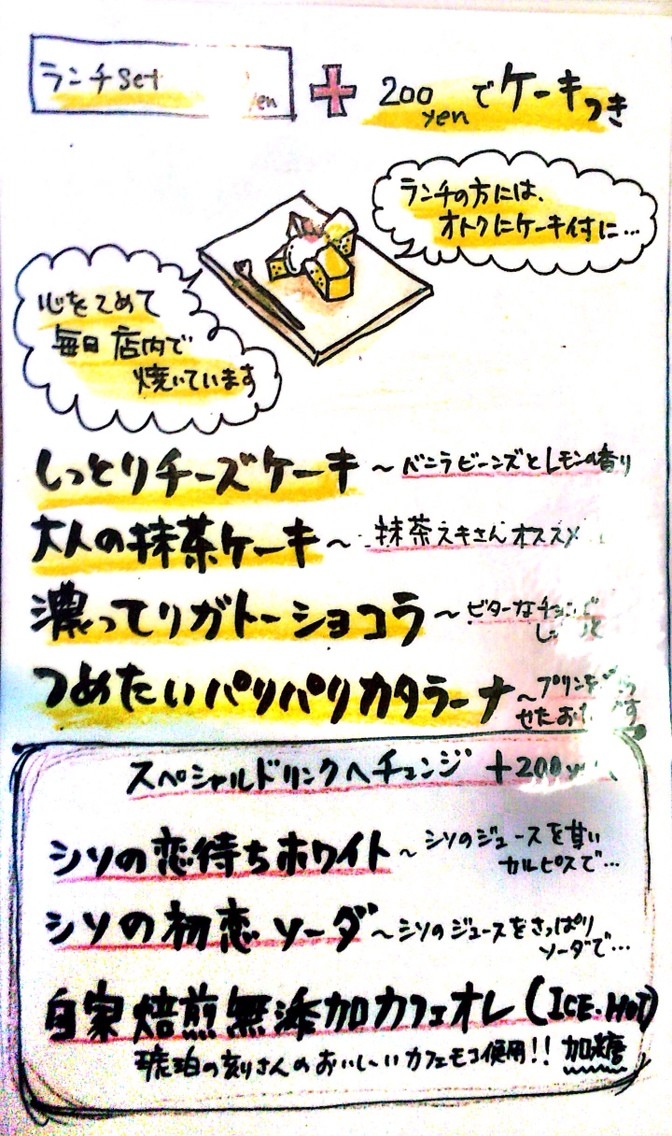 ランチset yen + 200 yen でケーキつき
ランチの方には、
オトクにケーキ付に…
心をこめて
毎日 店内で
焼いています
しっとりチーズケーキ ~ バニラビーンズとレモンの香り
大人の抹茶ケーキ ~ 抹茶ズキさんオススメ
濃ってりガトーショコラ ~ ビターな
つめたいパリパリカタラーナ ~ プリンを
せた
スペシャルドリンクへチェンジ +200
シソの恋待ちホワイト ~ シソのジュースを甘い
カルピスで…
シソの初恋ソーダ ~ シソのジュースをさっぱり
ソーダで…
自家焙煎無添加カフェオレ (ICE・HOT)
琥珀の刻さんのおいしいカフェモコ使用!! 加糖